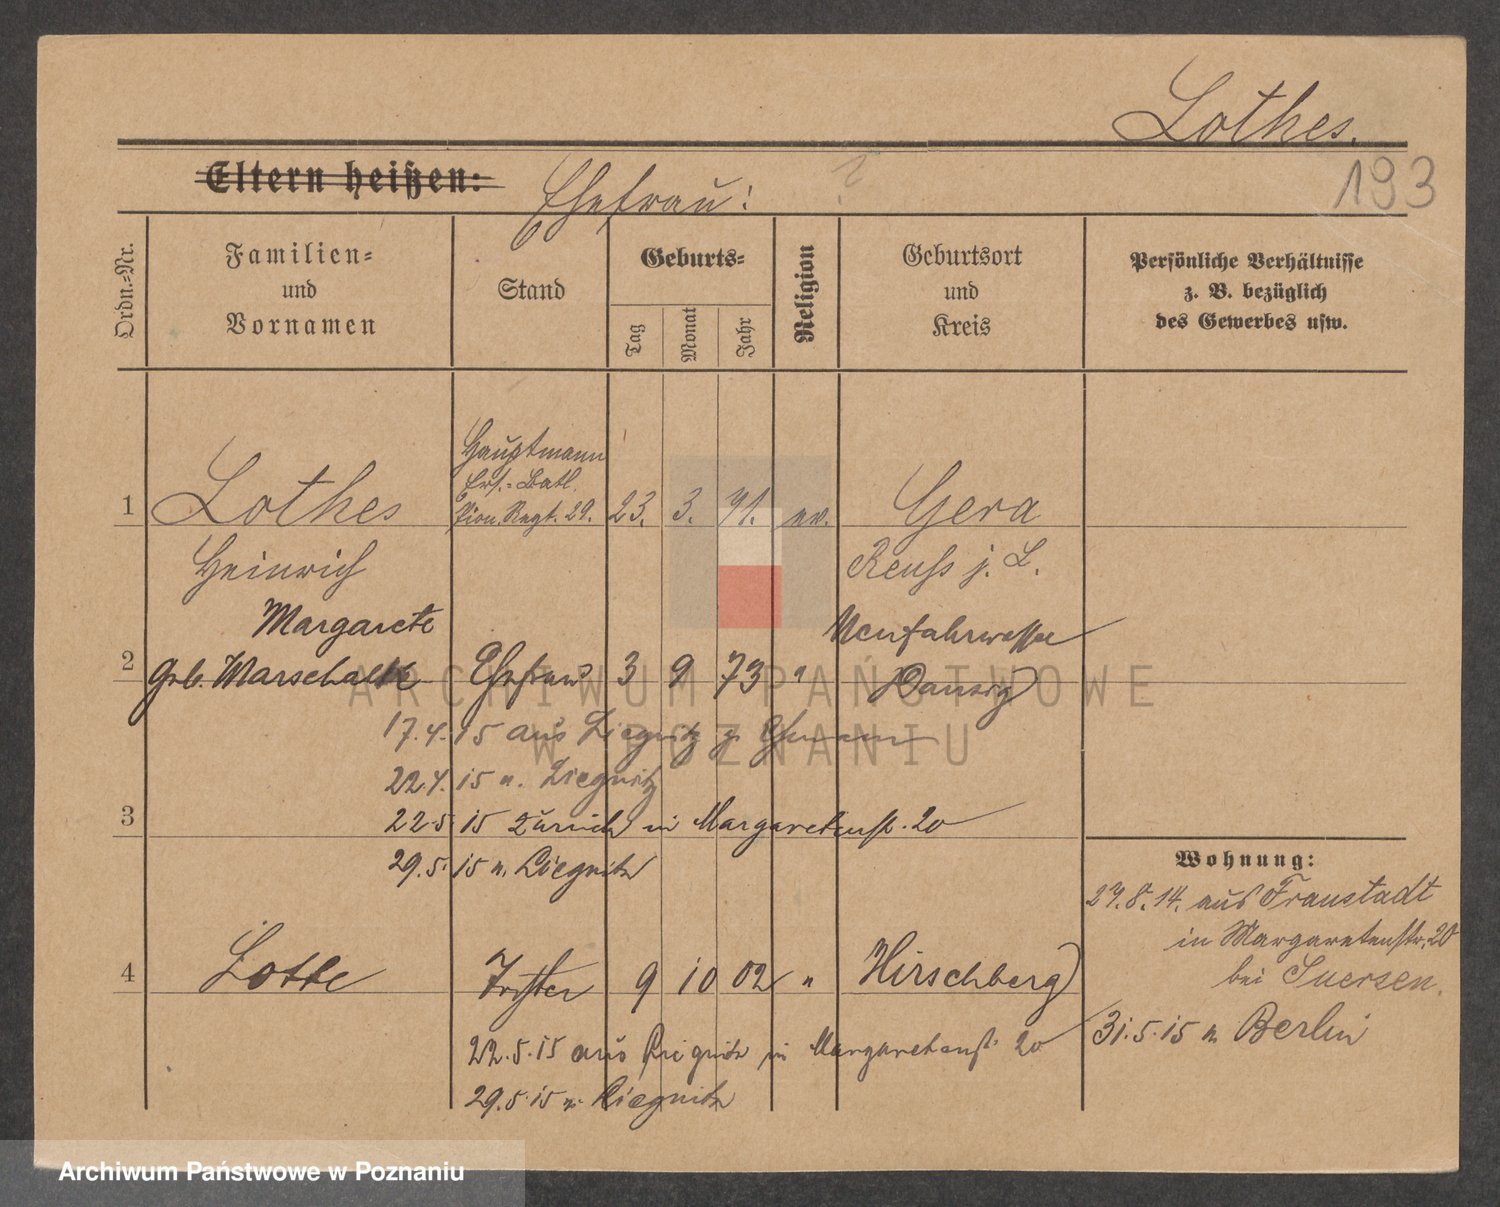 Lothes.
193
Eltern heißen:
Ehefrau:
Ordn.-Nr.
Familien-
und
Vornamen
Stand
Geburts-
Tag
Monat
Jahr
Religion
Geburtsort
und
Kreis
Persönliche Verhältnisse
z. B. bezüglich
des Gewerbes usw.
1 Lothes Hauptmann
Ers.-Batl.
Pion. Regt. 29. 23. 3. 71. ev. Gera
Heinrich Reuss j. L.
Margarete Neufahrwasser
2 geb. Marschalk Ehefrau 3 9 73 " Danzig
17.4.15 aus Liegnitz z.
22.4.15 n. Liegnitz
3 22.5.15 zurück in Margaretenstr. 20
29.5.15 n. Liegnitz
Wohnung:
27.8.14. aus Fraustadt
in Margaretenstr. 20
bei Suersen.
31.5.15 n Berlin
4 Lotte Tochter 9 10 02 " Hirschberg
22.5.15 aus Liegnitz in Margaretenstr. 20
29.5.15 n. Liegnitz
ARCHIWUM PAŃSTWOWE
W POZNANIU
Archiwum Państwowe w Poznaniu